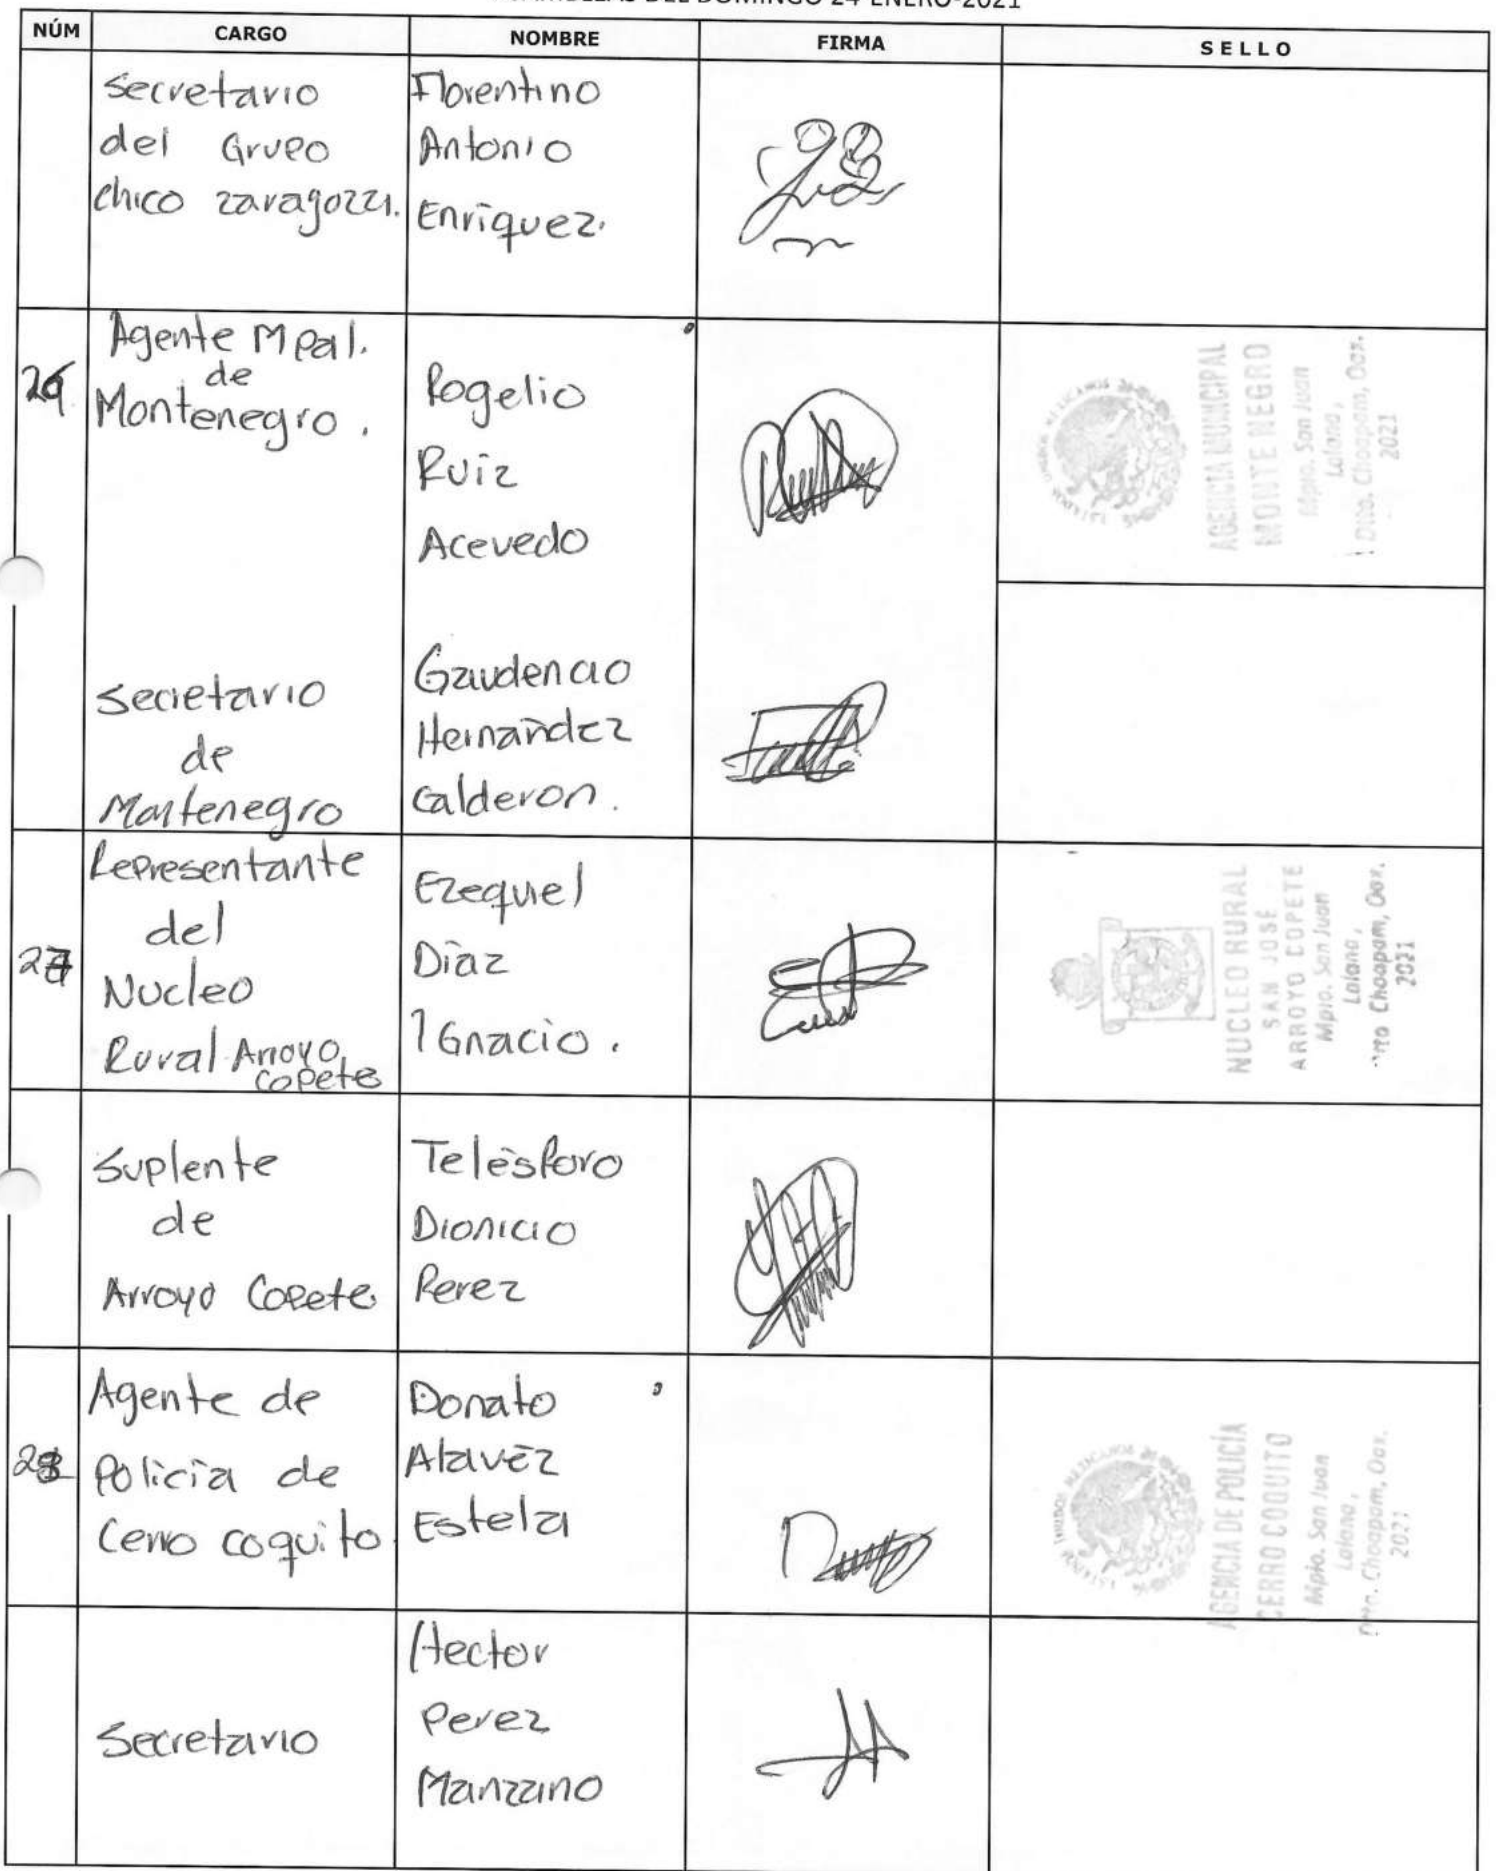 DEL DOMINGO 24-ENERO-2021
NÚM CARGO NOMBRE FIRMA SELLO
Secretario
del Grupo
chico zaragoza.
Florentino
Antonio
Enriquez.
26
Agente Mpal.
de
Montenegro.
Rogelio
Ruiz
Acevedo
AGENCIA MUNICIPAL
MONTE NEGRO
Mpio. San Juan
Lalana,
Dtto. Choapam, Oax.
2021
Secretario
de
Montenegro
Gaudencio
Hernández
Calderon.
27
Representante
del
Nucleo
Rural Arroyo
Copete
Ezequiel
Díaz
IGnacio.
NUCLEO RURAL
SAN JOSÉ
ARROYO COPETE
Mpio. San Juan
Lalana,
Choapam, Oax.
2021
Suplente
de
Arroyo Copete
Telésforo
Dionicio
Perez
28
Agente de
Policía de
Cerro coquito.
Donato
Alavéz
Estela
AGENCIA DE POLICÍA
CERRO COQUITO
Mpio. San Juan
Lalana,
Dtto. Choapam, Oax.
2021
Secretario
Hector
Perez
Manzano